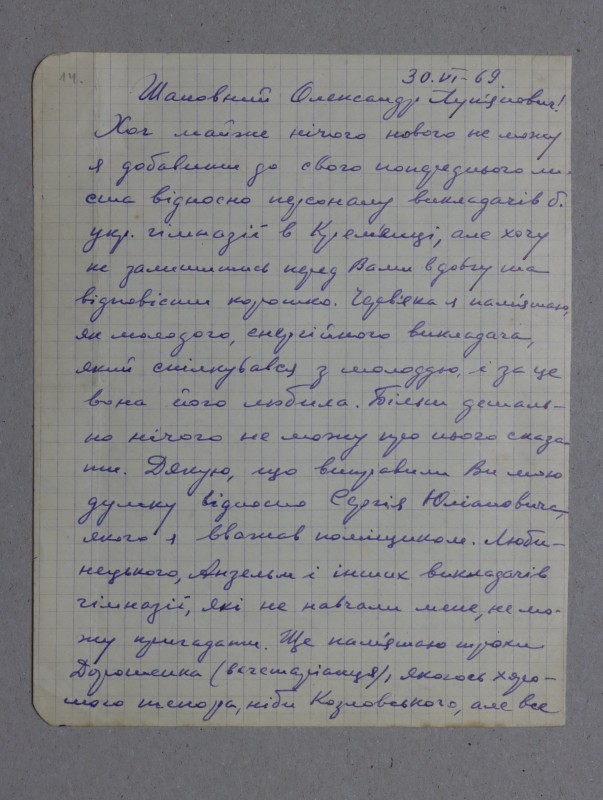 14.
30.VI-69
Шановний Олександр Лук'янович!
Хоч майже нічого нового не можу
я добавити до свого попереднього ли-
ста відносно персоналу викладачів б.
укр. гімназії в Крем'янці, але хочу
не залишитись перед Вами в довгу та
відповісти коротко. Черв'яка я пам'ятаю,
як молодого, енергійного викладача,
який спілкувався з молоддю, і за це
вона його любила. Більш деталь-
но нічого не можу про нього сказа-
ти. Дякую, що виправили Ви мою
думку відносно Сергія Юліановича,
якого я вважав поміщиком. Люби-
нецького, Анзельм і інших викладачів
гімназії, які не навчали мене, не мо-
жу пригадати. Ще пам'ятаю трохи
Дорошенка (вегетаріанця), якогось хоро-
шого тенора, ніби Козловського, але все